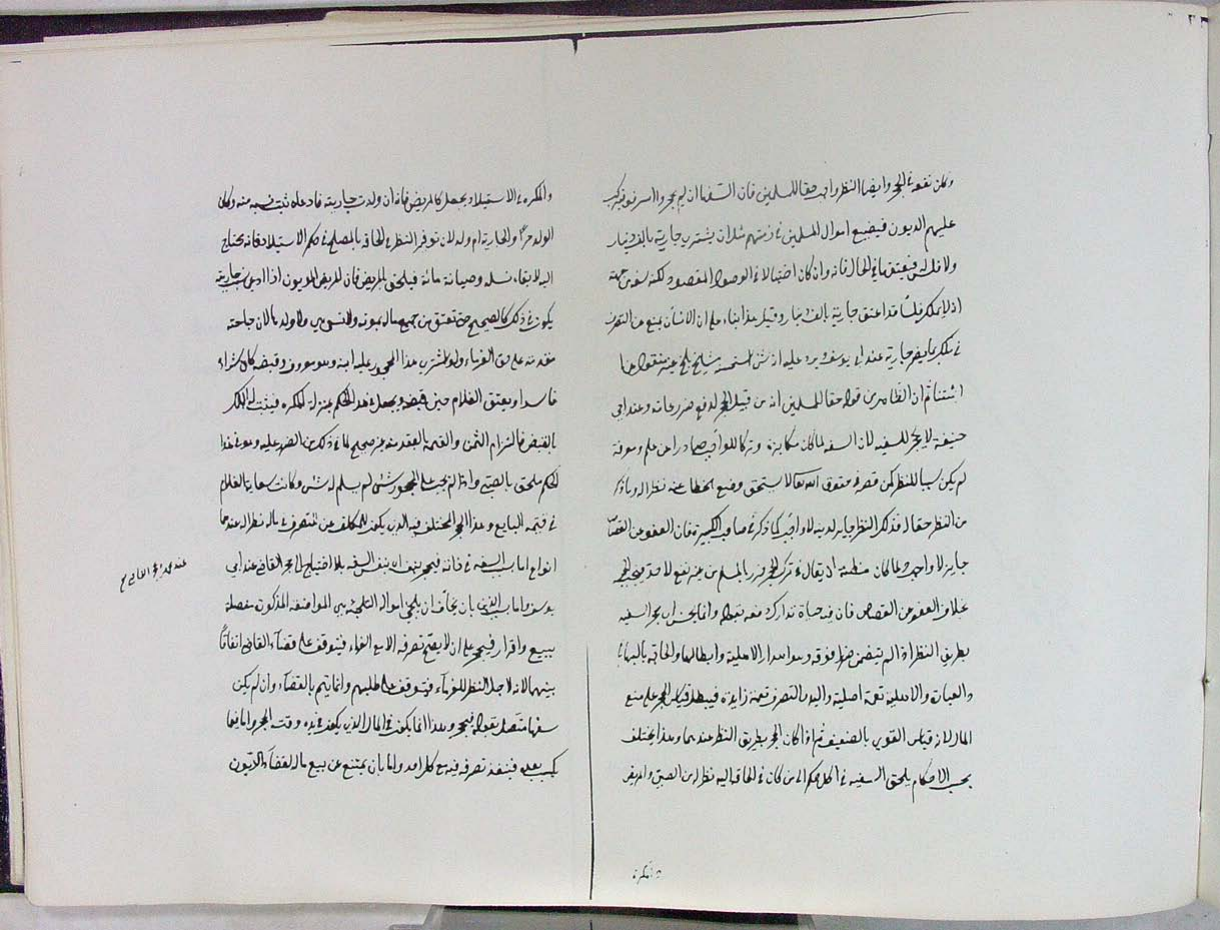 وكان نفعه في الحجر وايضا النظر واجب حقا للمسلمين فان السفهاء ان لم يحجروا اسرفوا فيركب
عليهم الديون فيضيع اموال المسلمين في ذمتهم مثل ان يشتري جارية بالف دينار
ولا فلس له فيعتقها في الحال فانه وان كان احتيالا في الوصول الى المقصود ولكنه سفه من جهة
انه لا يملك فلسا قد اعتق جارية بالف دينار وقيل هذا بناء على ان الانسان يمنع عن التصرف
في ملكه بما يضر جاره عند ابي يوسف
ان الظاهر من قوله حقا للمسلمين انه من قبيل الحجر لدفع ضرر عامة وعند ابي
حنيفة لا يحجر السفيه لان السفه لما كان مكابرة وتركا للواجب صادرا عن علم ومعرفة
لم يكن سببا للنظر كمن قصر في حقوق الله تعالى لا يستحق وضع الخطاب عنه نظرا له وما ذكر
من النظر حقا له فذلك النظر جايز لدينه لا واجب كما ذكر في صاحب الكبيرة فان العفو عن القصاص
جايز لا واجب ولما كان مظنة ان يقال في ترك الحجر ضرر بالمسلمين من غير نفع لاحد فيجب الحجر
بخلاف العفو عن القصاص فان فيه حياة تدارك دفعه بقوله وانما يحسن الحجر السفيه
بطريق النظر اذا لم يتضمن ضررا فوقه وهو اهدار الاهلية وابطالها والحاقه بالبهائم
والعبارة والاهلية نعمة اصلية واليد والتصرف نعمة زايدة فيبطل قياس الحجر على منع
المال لانه قياس القوي بالضعيف ثم اذا كان الحجر بطريق النظر عندهما وهذا يختلف
بحسب الاحكام يلحق السفيه في كل حكم الى من كان في الحاقه اليه نظر من الصبي والمريض
والمكره
والمكره في الاستيلاد يجعل كالمريض فانه ان ولدت جاريته فادعاه ثبت نسبه منه وكان
الولد حرا والجارية ام ولد لان توفر النظر في الحاقه بالمصلح في حكم الاستيلاد فانه يحتاج
اليه لابقاء نسله وصيانة مائه فيلحق بالمريض فان المريض المديون اذا ادعى نسب جاريته
يكون في ذلك كالصحيح حتى تعتق من جميع ماله بموته ولا تسعى هي ولا ولدها لان حاجته
مقدمة على حق الغرماء ولو اشترى هذا المحجور عليه ابنه وهو معروف وقبضه كان شراؤه
فاسدا ويعتق الغلام حين قبضه ويجعل في هذا الحكم بمنزلة المكره فيثبت له الملك
بالقبض فالتزام الثمن والقيمة بالعقد منه غير صحيح لما في ذلك من الضرر عليه وهو في هذا
الحكم ملحق بالصبي واذا لم يجب على المحجور شيء لم يسلم له شيء وكانت سعاية الغلام
في قيمته للبايع وهذا الحجر المختلف فيه الذي يكون للمكلف عن التصرف في ماله نظرا له عندهما
انواع اما بسبب السفه في ذاته فيحجر بنفس السفه بلا احتياج الى حجر القاضي عند ابي
يوسف واما بسبب الدين بان يخاف ان يلجئ امواله التلجئة هي المواضعة المذكورة مفصلة
ببيع واقرار فيحجر على ان لا يصح تصرفه الا مع الغرماء فيتوقف على قضاء القاضي اتفاقا
بينهما لانه لاجل النظر للغرماء فيتوقف على طلبهم وانما يتم بالقضاء وان لم يكن
سفيها متصل بقوله فيحجر وهذا انما يكون في المال الذي يكون في يده وقت الحجر واما فيما
يكسب بعده فينفذ تصرفه فيه مع كل احد واما بان يمتنع عن بيع ماله لقضاء الديون